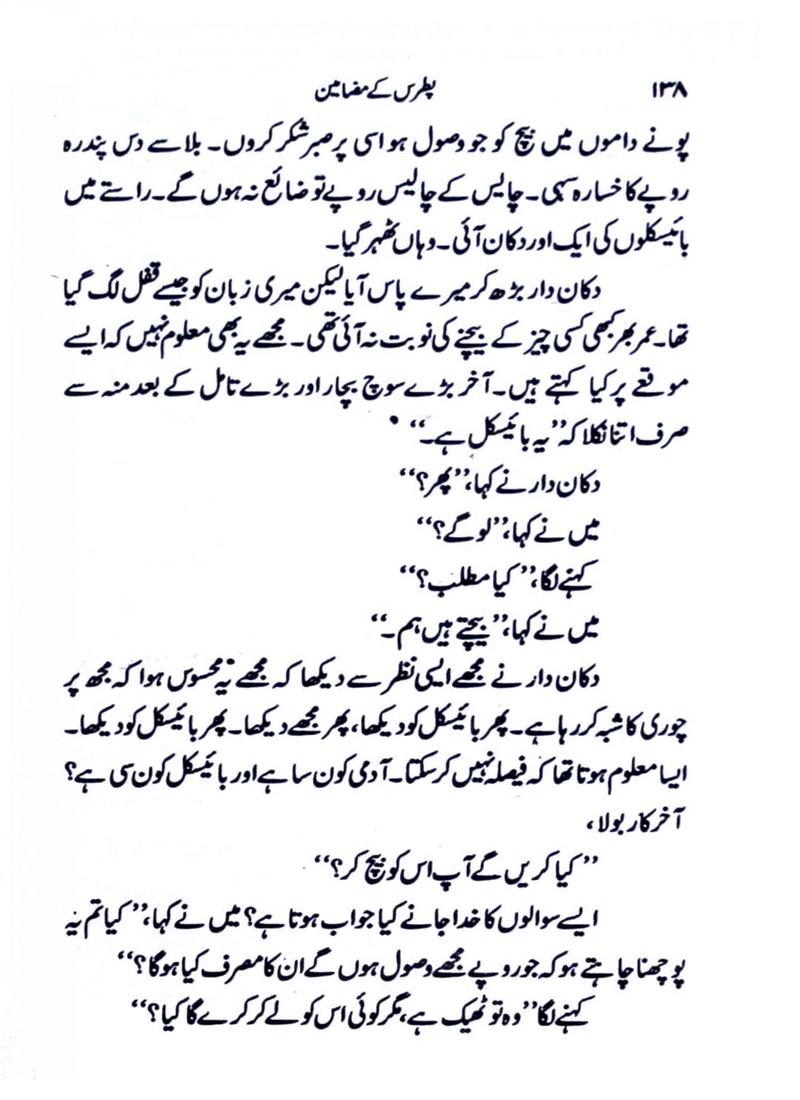 ۱۳۸ پطرس کے مضامین
پونے داموں میں بیچ کو جو وصول ہو اسی پر صبر شکر کروں۔ بلا سے دس پندرہ
روپے کا خسارہ سہی۔ چالیس کے چالیس روپے تو ضائع نہ ہوں گے۔ راستے میں
بائیسکلوں کی ایک اور دکان آئی۔ وہاں ٹھہر گیا۔
دکان دار بڑھ کر میرے پاس آیا لیکن میری زبان کو جیسے قفل لگ گیا
تھا۔ عمر بھر کبھی کسی چیز کے بیچنے کی نوبت نہ آئی تھی۔ مجھے یہ بھی معلوم نہیں کہ ایسے
موقعے پر کیا کہتے ہیں۔ آخر بڑے سوچ بچار اور بڑے تامل کے بعد منہ سے
صرف اتنا نکلا کہ ”یہ بائیسکل ہے۔“
دکان دار نے کہا، ”پھر؟“
میں نے کہا، ”لو گے؟“
کہنے لگا، ”کیا مطلب؟“
میں نے کہا، ”بیچتے ہیں ہم۔“
دکان دار نے مجھے ایسی نظر سے دیکھا کہ مجھے یہ محسوس ہوا کہ مجھ پر
چوری کا شبہ کر رہا ہے۔ پھر بائیسکل کو دیکھا، پھر مجھے دیکھا۔ پھر بائیسکل کو دیکھا۔
ایسا معلوم ہوتا تھا کہ فیصلہ نہیں کر سکتا۔ آدمی کون سا ہے اور بائیسکل کون سی ہے؟
آخرکار بولا،
”کیا کریں گے آپ اس کو بیچ کر؟“
ایسے سوالوں کا خدا جانے کیا جواب ہوتا ہے؟ میں نے کہا، ”کیا تم یہ
پوچھنا چاہتے ہو کہ جو روپے مجھے وصول ہوں گے ان کا مصرف کیا ہو گا؟“
کہنے لگا ”وہ تو ٹھیک ہے، مگر کوئی اس کو لے کر کرے گا کیا؟“